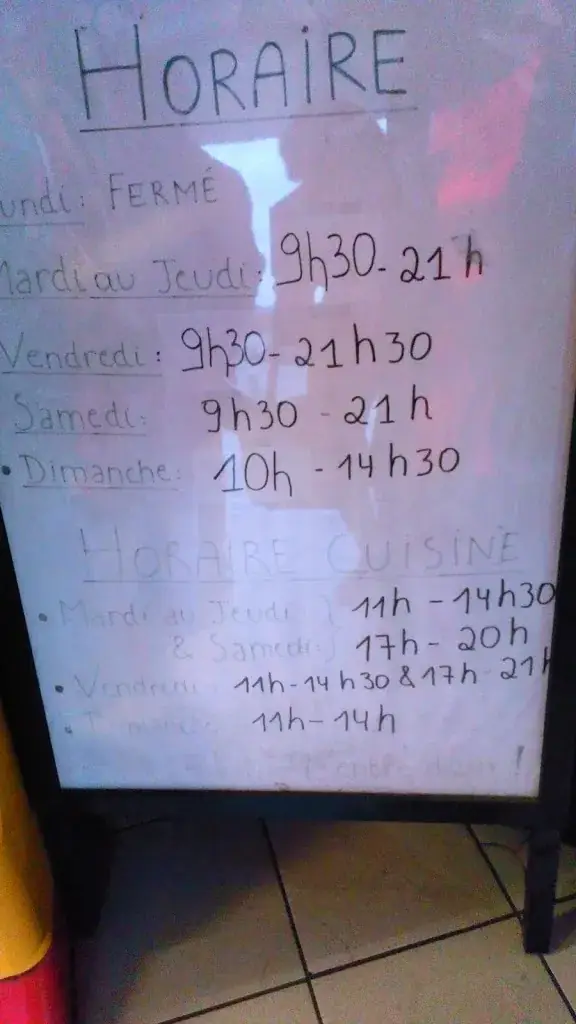 HORAIRE
undi: FERMÉ
Mardi au Jeudi: 9h30-21h
Vendredi: 9h30-21h30
Samedi: 9h30-21h
• Dimanche: 10h-14h30
HORAIRE CUISINE
• Mardi au Jeudi } 11h-14h30
& Samedi: } 17h-20h
• Vendredi: 11h-14h30 & 17h-21h
• 11h-14h
!